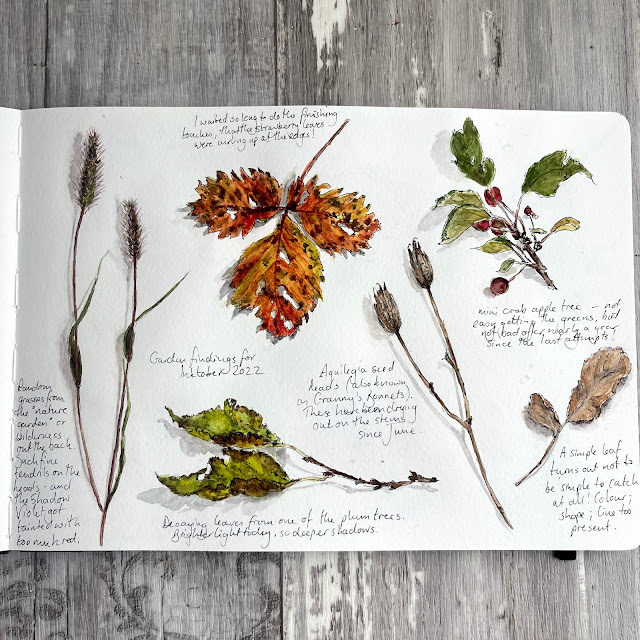 I waited so long to do the finishing
touches, that the strawberry leaves
were curling up at the edges!
mini crab apple tree – not
easy getting the greens, but
not bad after nearly a year
since the last attempts!
Garden findings for
Inktober 2022
Aquilegia seed
heads (also known
as Granny's Bonnets).
These have been drying
out on the stems
since June
Random
grasses from
the "nature
garden" or
wilderness
out the back.
Such fine
tendrils on the
heads – and
the Shadow
Violet got
tainted with
too much red.
A simple leaf
turns out not to
be simple to catch
at all! Colour;
shape; line too
present.
Decaying leaves from one of the plum trees.
Brighter light today, so deeper shadows.